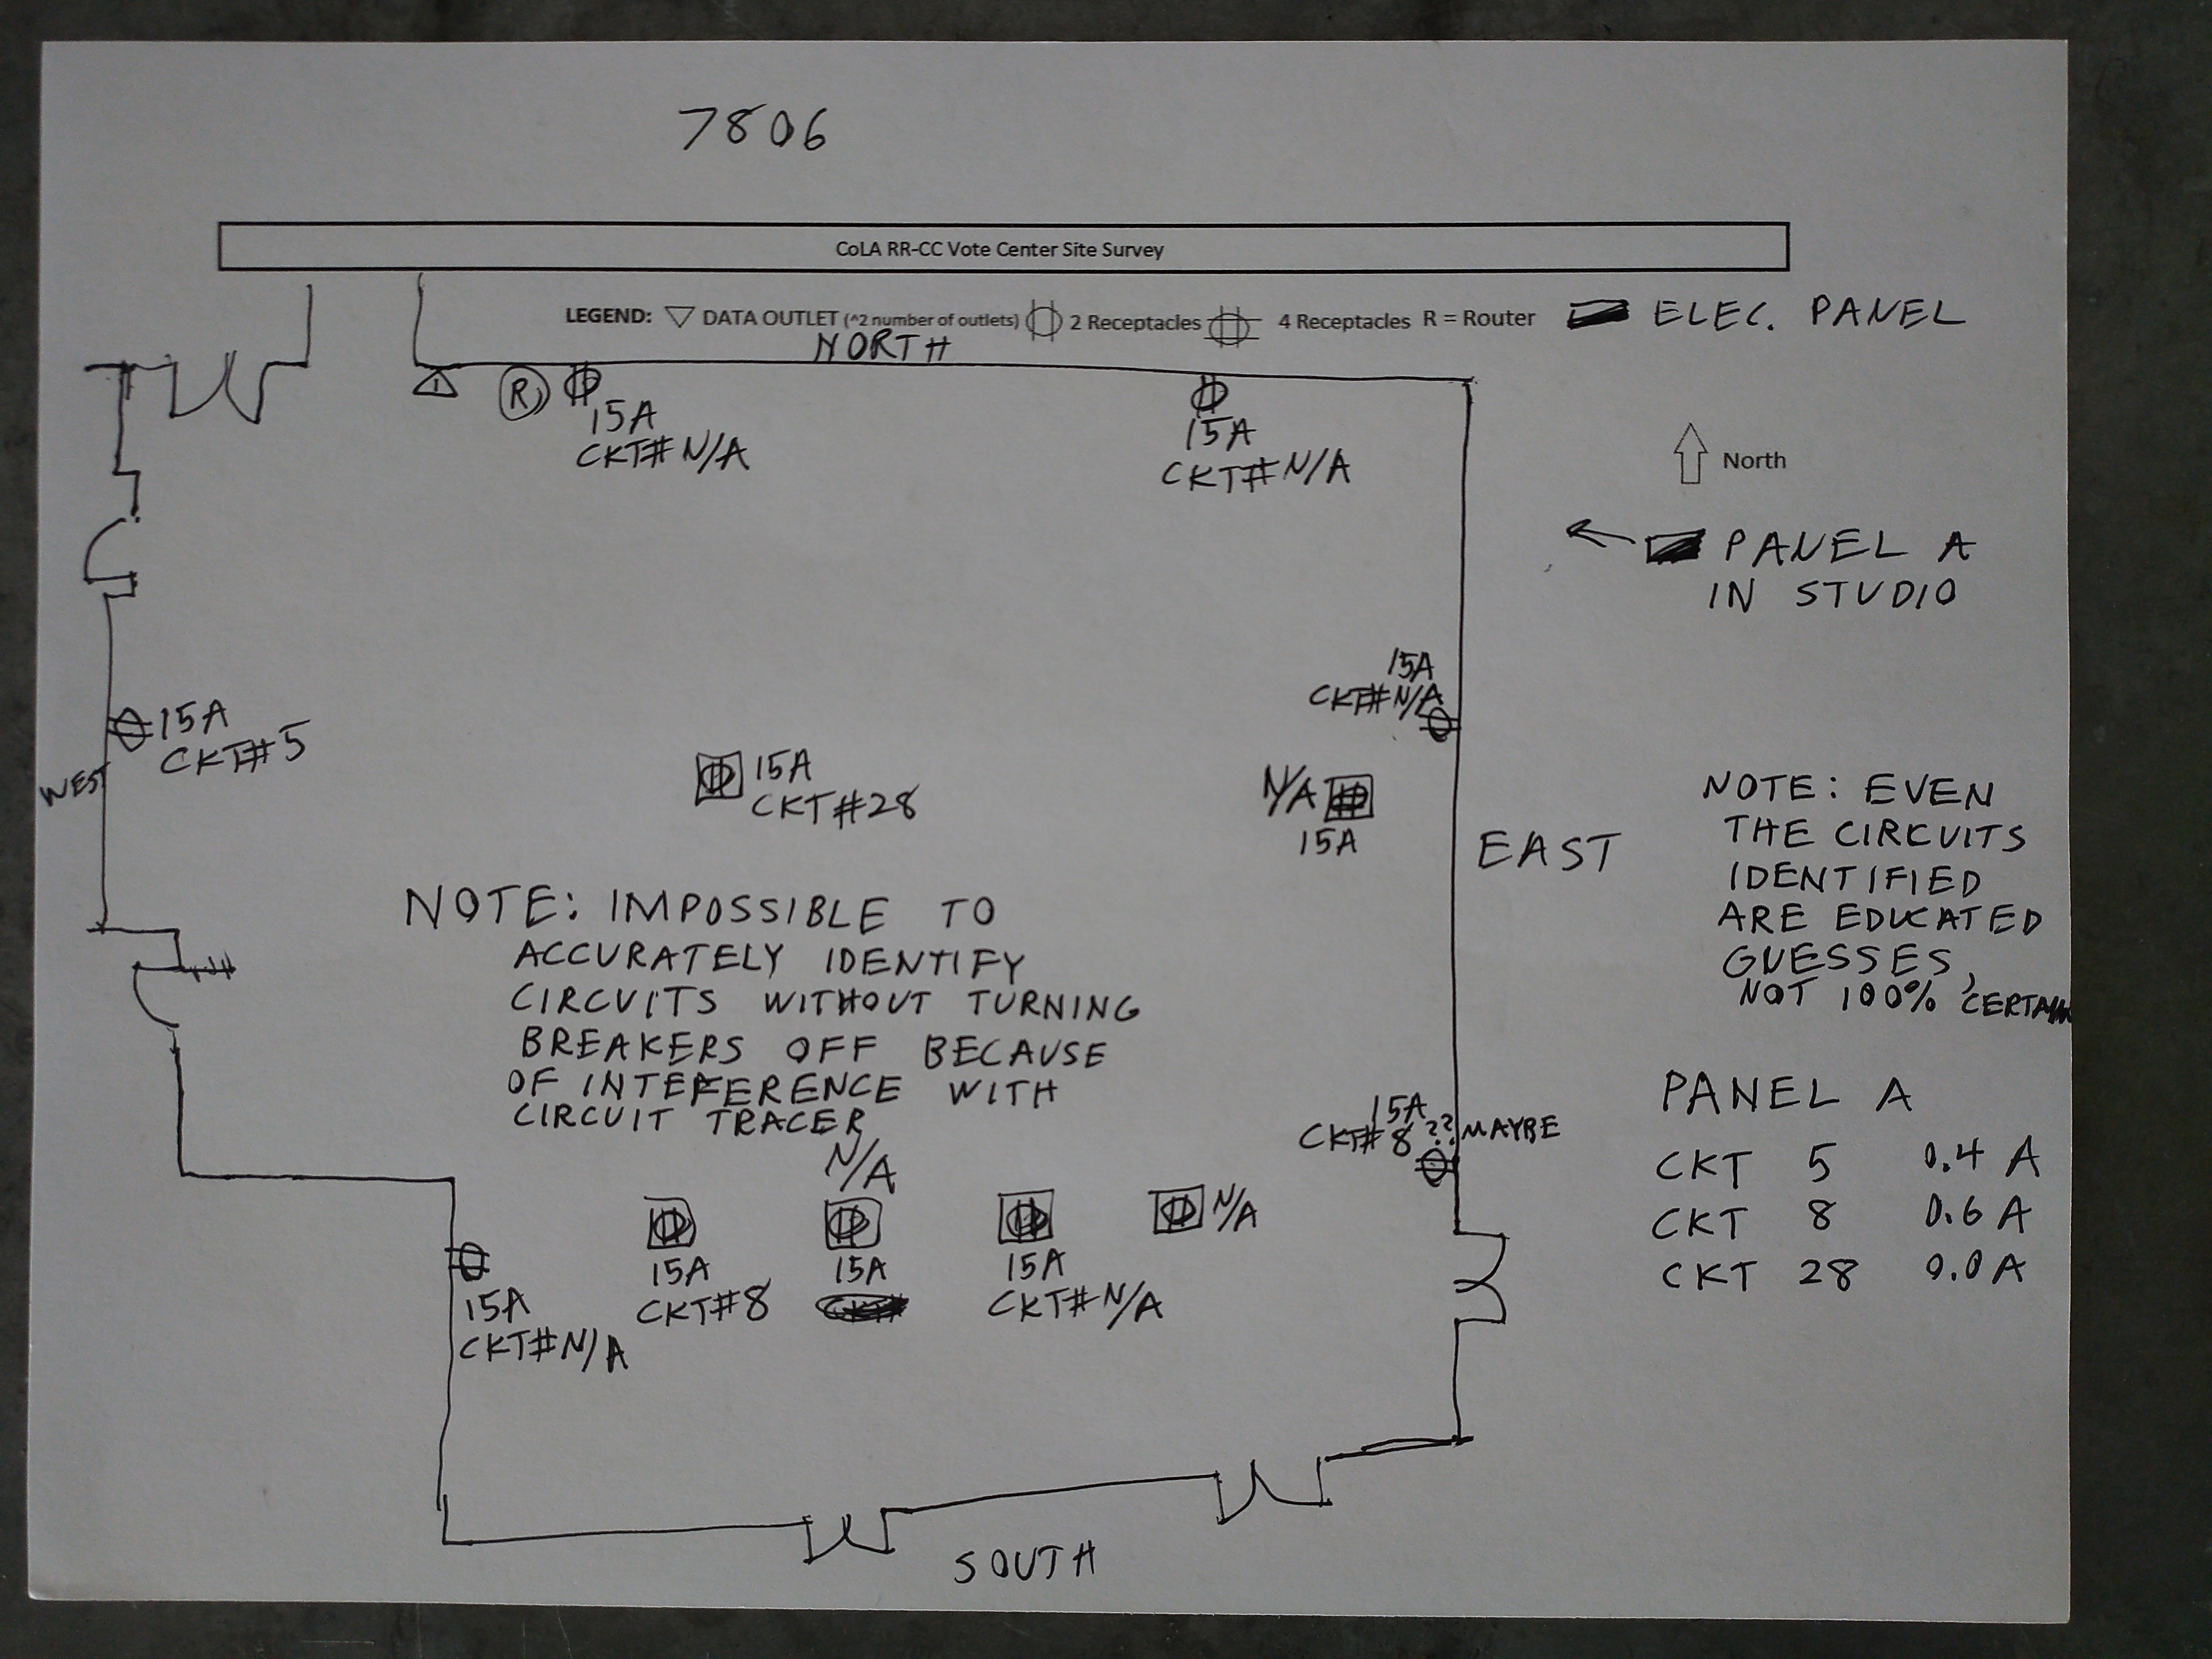 7806
CoLA RR-CC Vote Center Site Survey
LEGEND: DATA OUTLET (^2 number of outlets) 2 Receptacles 4 Receptacles R = Router ELEC. PANEL
NORTH
1
R
15A
CKT# N/A
15A
CKT# N/A
North
PANEL A
IN STUDIO
15A
CKT# N/A
15A
CKT# 5
WEST
15A
CKT #28
N/A
15A
EAST
NOTE: EVEN
THE CIRCUITS
IDENTIFIED
ARE EDUCATED
GUESSES,
NOT 100% CERTAIN
NOTE: IMPOSSIBLE TO
ACCURATELY IDENTIFY
CIRCUITS WITHOUT TURNING
BREAKERS OFF BECAUSE
OF INTEFERENCE WITH
CIRCUIT TRACER
15A
CKT# 8 ?? MAYBE
PANEL A
CKT 5 0.4 A
CKT 8 0.6 A
CKT 28 0.0 A
N/A
N/A
15A
CKT# N/A
15A
CKT# 8
15A
15A
CKT# N/A
SOUTH